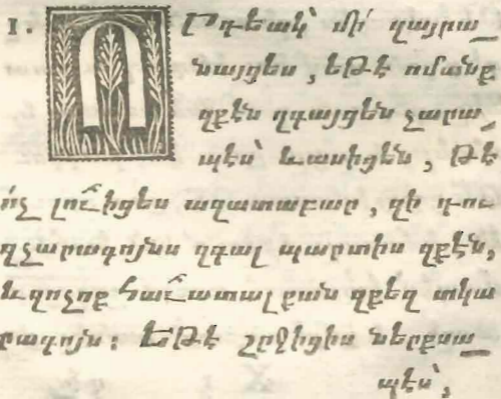 1. ՈՐդեակ՝ մի՛ զայրա_
նայցես, եթէ ոմանք
զքէն զգայցեն չարա_
պէս՝ և ասիցեն, թէ
ո՛չ լուիցես ազատաբար, զի դու
զչարագոյնս զգալ պարտիս զքէն,
և զոչոք հաւատալ քան զքեզ տկա
րագոյն։ Եթէ շրջիցիս ներքսա_
պէս՝,